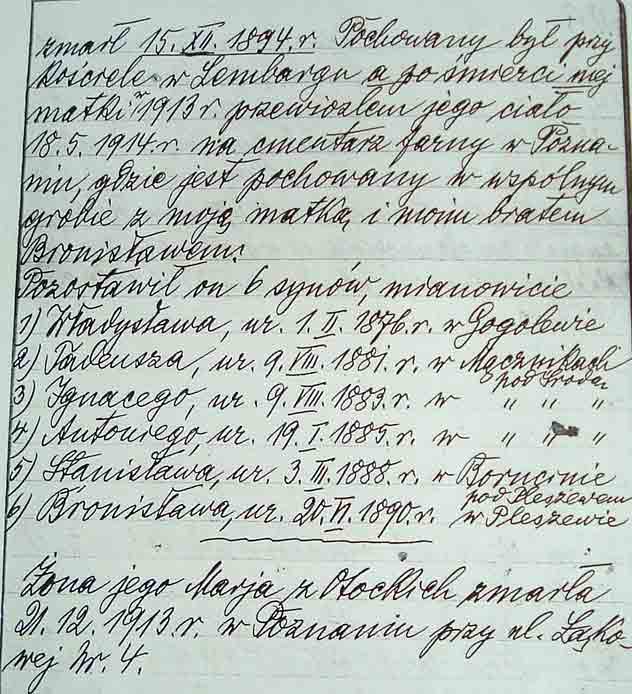 zmarł 15. XII. 1894. r. Pochowany był przy
kościele w Lembargu a po śmierci mej
matki w 1913 r. przewiozłem jego ciało
18. 5. 1914. r. na cmentarz farny w Pozna-
niu, gdzie jest pochowany w wspólnym
grobie z moją matką i moim bratem
Bronisławem.
Pozostawił on 6 synów, mianowicie
1) Władysława, ur. 1. II. 1876. r. w Gogolewie
2) Tadeusza, ur. 9. VIII. 1881. r. w Mącznikach
pod Środą
3) Ignacego, ur. 9. VIII. 1883. r. w " " "
4) Antoniego, ur. 19. I. 1885. r. w " " "
5) Stanisława, ur. 3. III. 1888. r. w Borucinie
pod Pleszewem
6) Bronisława, ur. 20. VI. 1890. r. w Pleszewie
Żona jego Marja z Otockich zmarła
21. 12. 1913. r. w Poznaniu przy ul. Łąko-
wej Nr. 4.